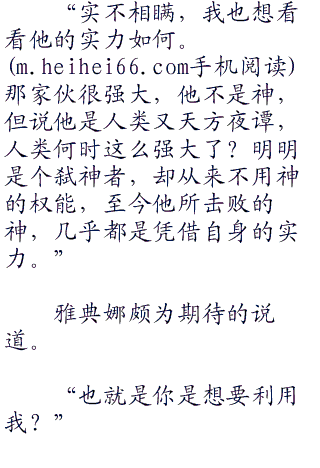 “实不相瞒，我也想看
看他的实力如何。
(m.heihei66.com手机阅读)
那家伙很强大，他不是神，
但说他是人类又天方夜谭，
人类何时这么强大了？明明
是个弑神者，却从来不用神
的权能，至今他所击败的
神，几乎都是凭借自身的实
力。”
雅典娜颇为期待的说
道。
“也就是你是想要利用
我？”